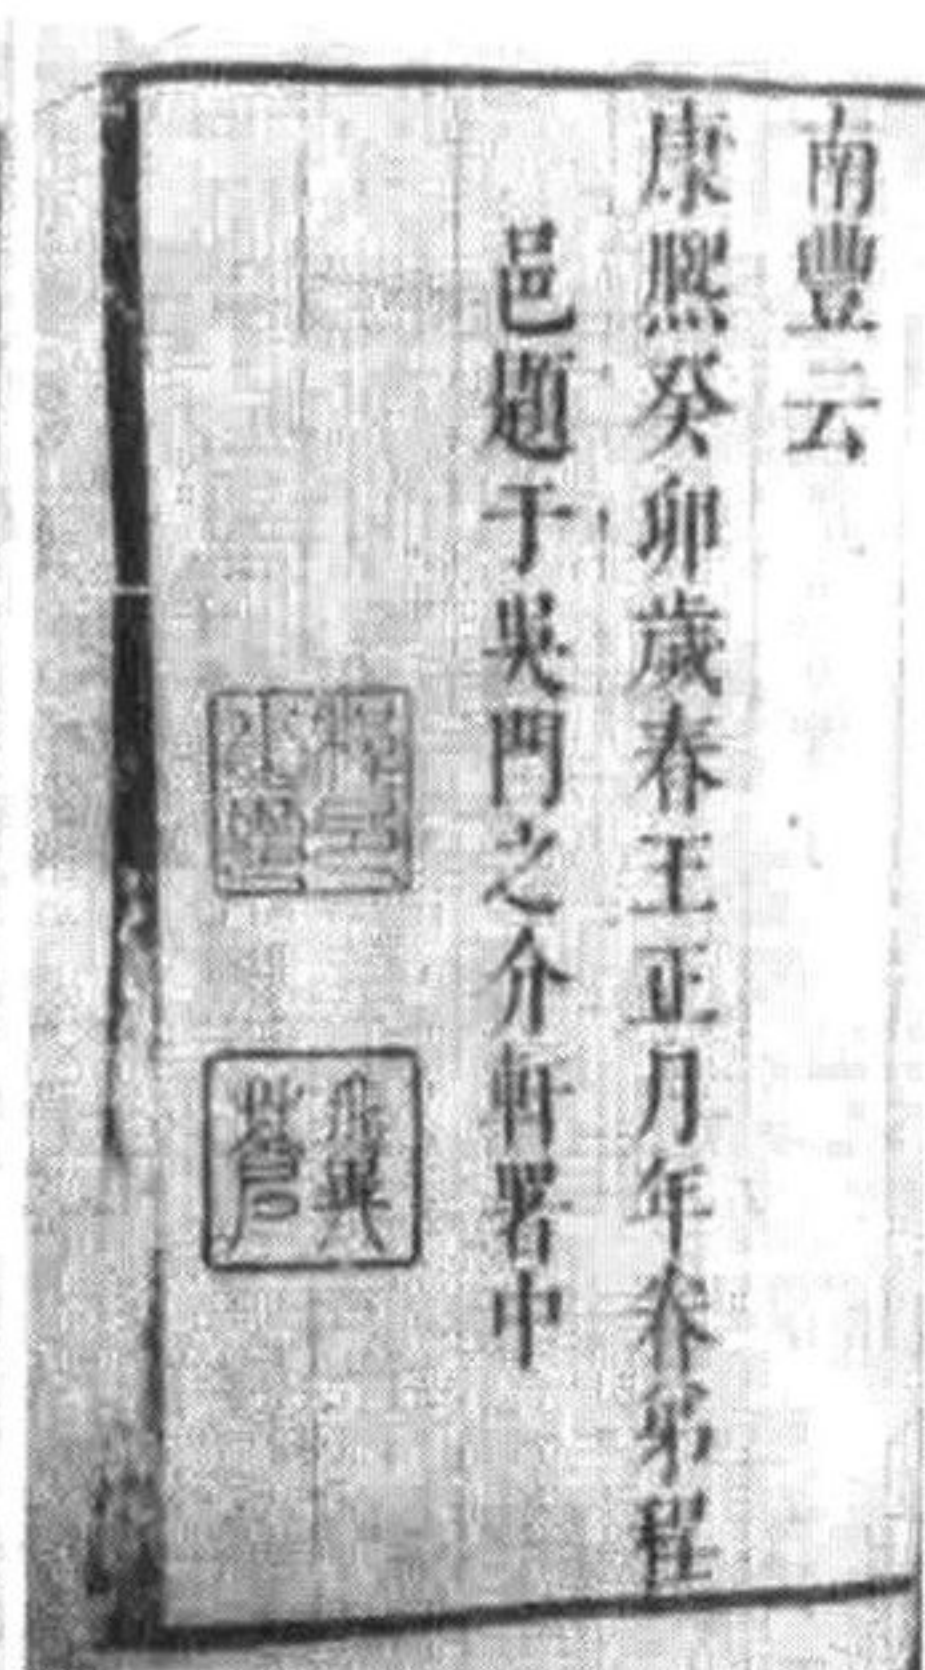 南豐云
康熙癸卯歲春王正月年眷弟程
邑題于吳門之介軒署中